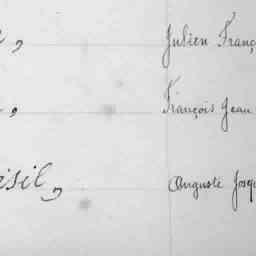 Julien Franç
François Jean
Auguste Josep